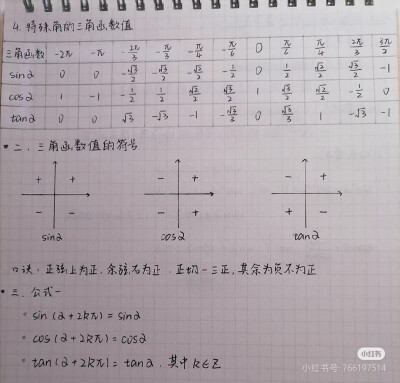 4. 特殊角的三角函数值
三角函数 -2π -π -2π/3 -π/3 -π/4 -π/6 0 π/6 π/4 2π/3 3π/2
sinα 0 0 -√3/2 -√3/2 -√2/2 -1/2 0 1/2 √2/2 √3/2 -1
cosα 1 -1 -1/2 1/2 √2/2 √3/2 1 √3/2 √2/2 -1/2 0
tanα 0 0 √3 -√3 -1 -√3/3 0 √3/3 1 -√3 -
二、三角函数值的符号
+ + - + - +
- - - + + -
sinα cosα tanα
口诀:正弦上为正,余弦右为正,正切一三正,其余为负不为正
三、公式一
sin(α+2kπ)=sinα
cos(α+2kπ)=cosα
tan(α+2kπ)=tanα,其中k∈Z
小红书
小红书号:766197514